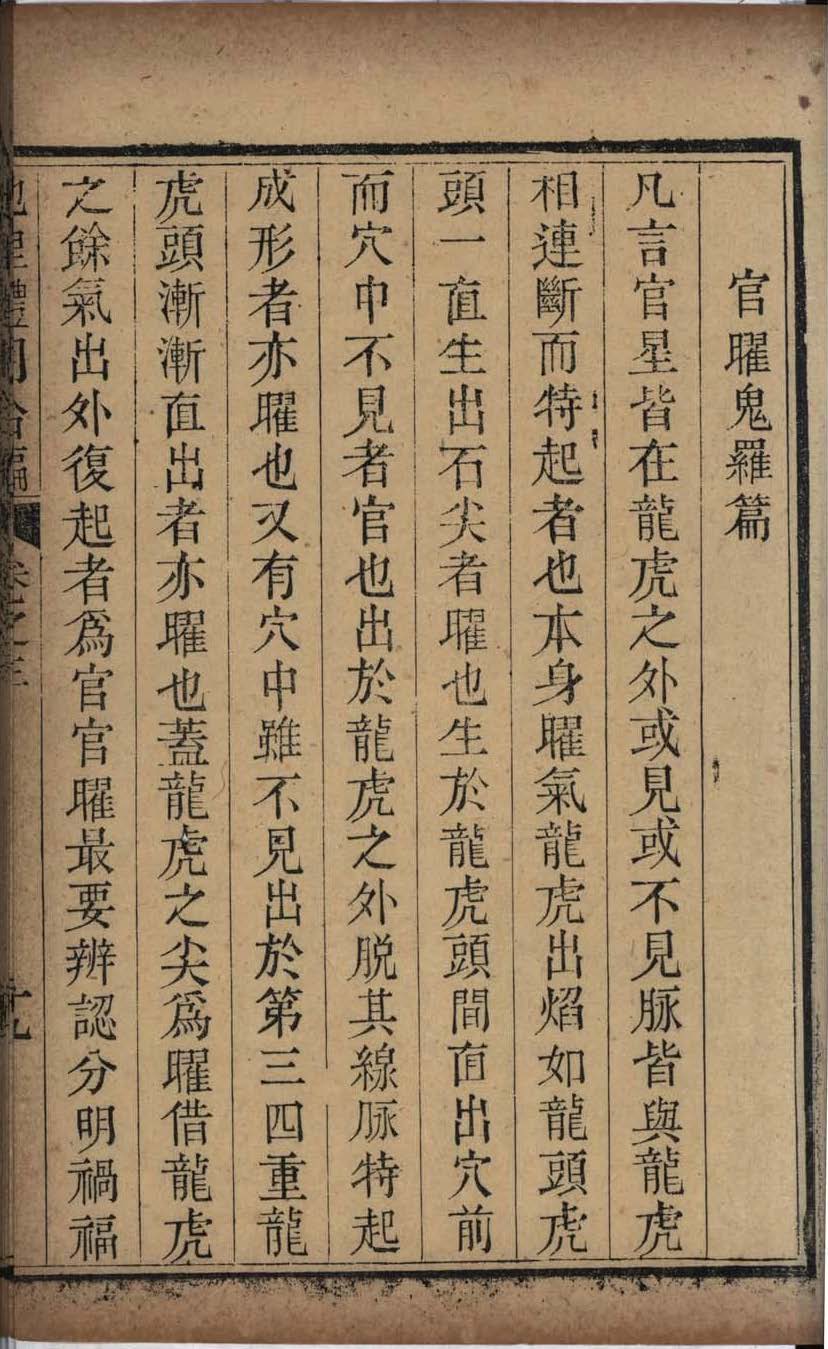 官曜鬼羅篇
凡言官星皆在龍虎之外或見或不見脉皆與龍虎
相連斷而特起者也本身曜氣龍虎出焰如龍頭虎
頭一直生出石尖者曜也生於龍虎頭間直出穴前
而穴中不見者官也出於龍虎之外脱其線脉特起
成形者亦曜也又有穴中雖不見出於第三四重龍
虎頭漸漸直出者亦曜也蓋龍虎之尖爲曜借龍虎
之餘氣出外復起者爲官官曜最要辨認分明禍福